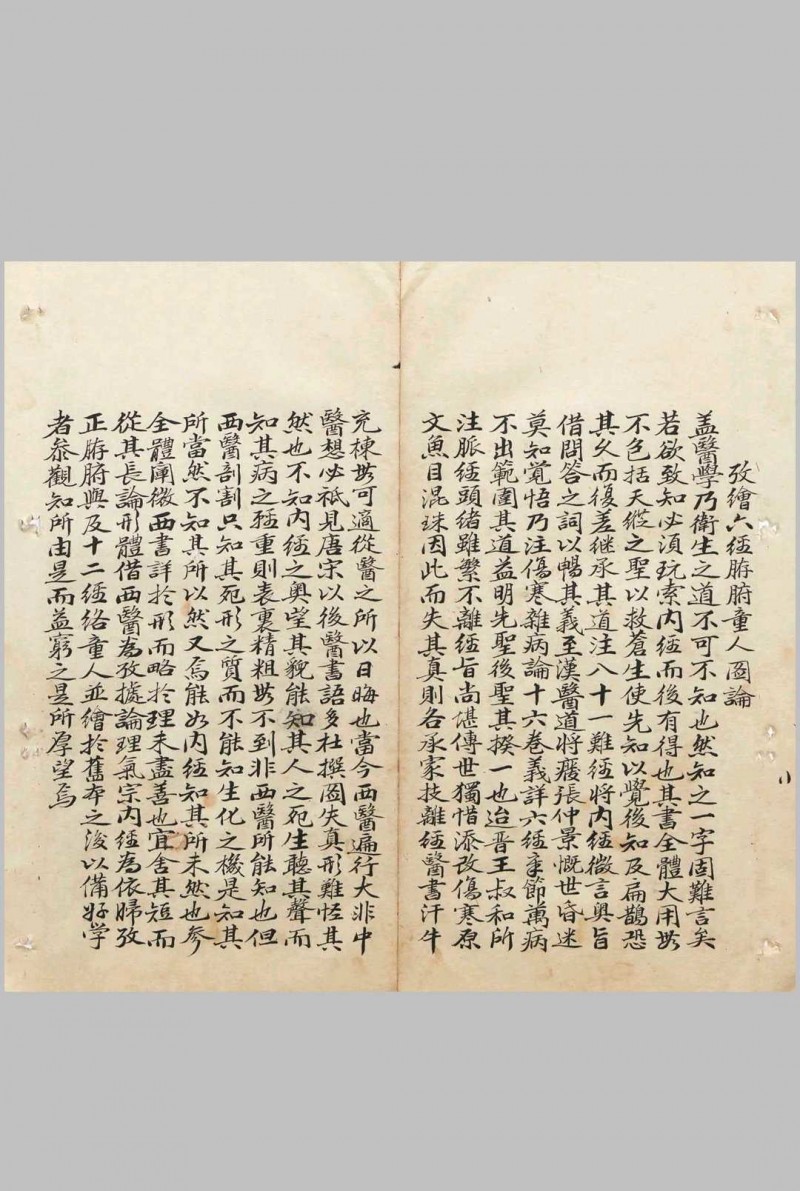 攷繪六経腑臓童人圖論
盖醫學乃衛生之道不可不知也然知之一字固難言矣
若欲致知必須玩索内経而後有得也其書全體大用無
不包括天縱之聖以救蒼生使先知以覺後知及扁鵲恐
其久而復差継承其道注八十一難経將内経微言奥旨
借問答之詞以暢其義至漢醫道將癈張仲景慨世昏迷
莫知覚悟乃注傷寒雜病論十六卷義詳六経章節萬病
不出範圍其道益明先聖後聖其揆一也迨晋王叔和所
注脈経頭緒雖繁不離経旨尚堪傳世獨惜添改傷寒原
文魚目混珠因此而失其真則各承家技離経醫書汗牛
充棟無可適從醫之所以日晦也當今西醫遍行大非中
醫想必祇見唐宋以後醫書語多杜撰圖失真形難怪其
然也不知内経之奥望其貌能知其人之死生聽其聲而
知其病之軽重則表裏精粗無不到非西醫所能知也但
西醫剖割只知其死形之質而不能知生化之機是知其
所當然不知其所以然又焉能如内経知其所未然也参
全體闡微西書詳於形而略於理未盡善也宜舍其短而
從其長論形體借西醫為攷據論理氣宗内経為依歸攷
正腑臓與及十二経絡童人並繪於舊夲之後以備好学
者叅觀知所由是而益窮之是所厚望焉